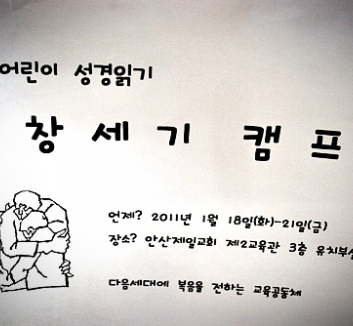 어린이 성경읽기
창세기 캠프
언제? 2011년 1월 18일(화)-21일(금)
장소? 안산제일교회 제2교육관 3층 유치부실
다음세대에 복음을 전하는 교육공동체